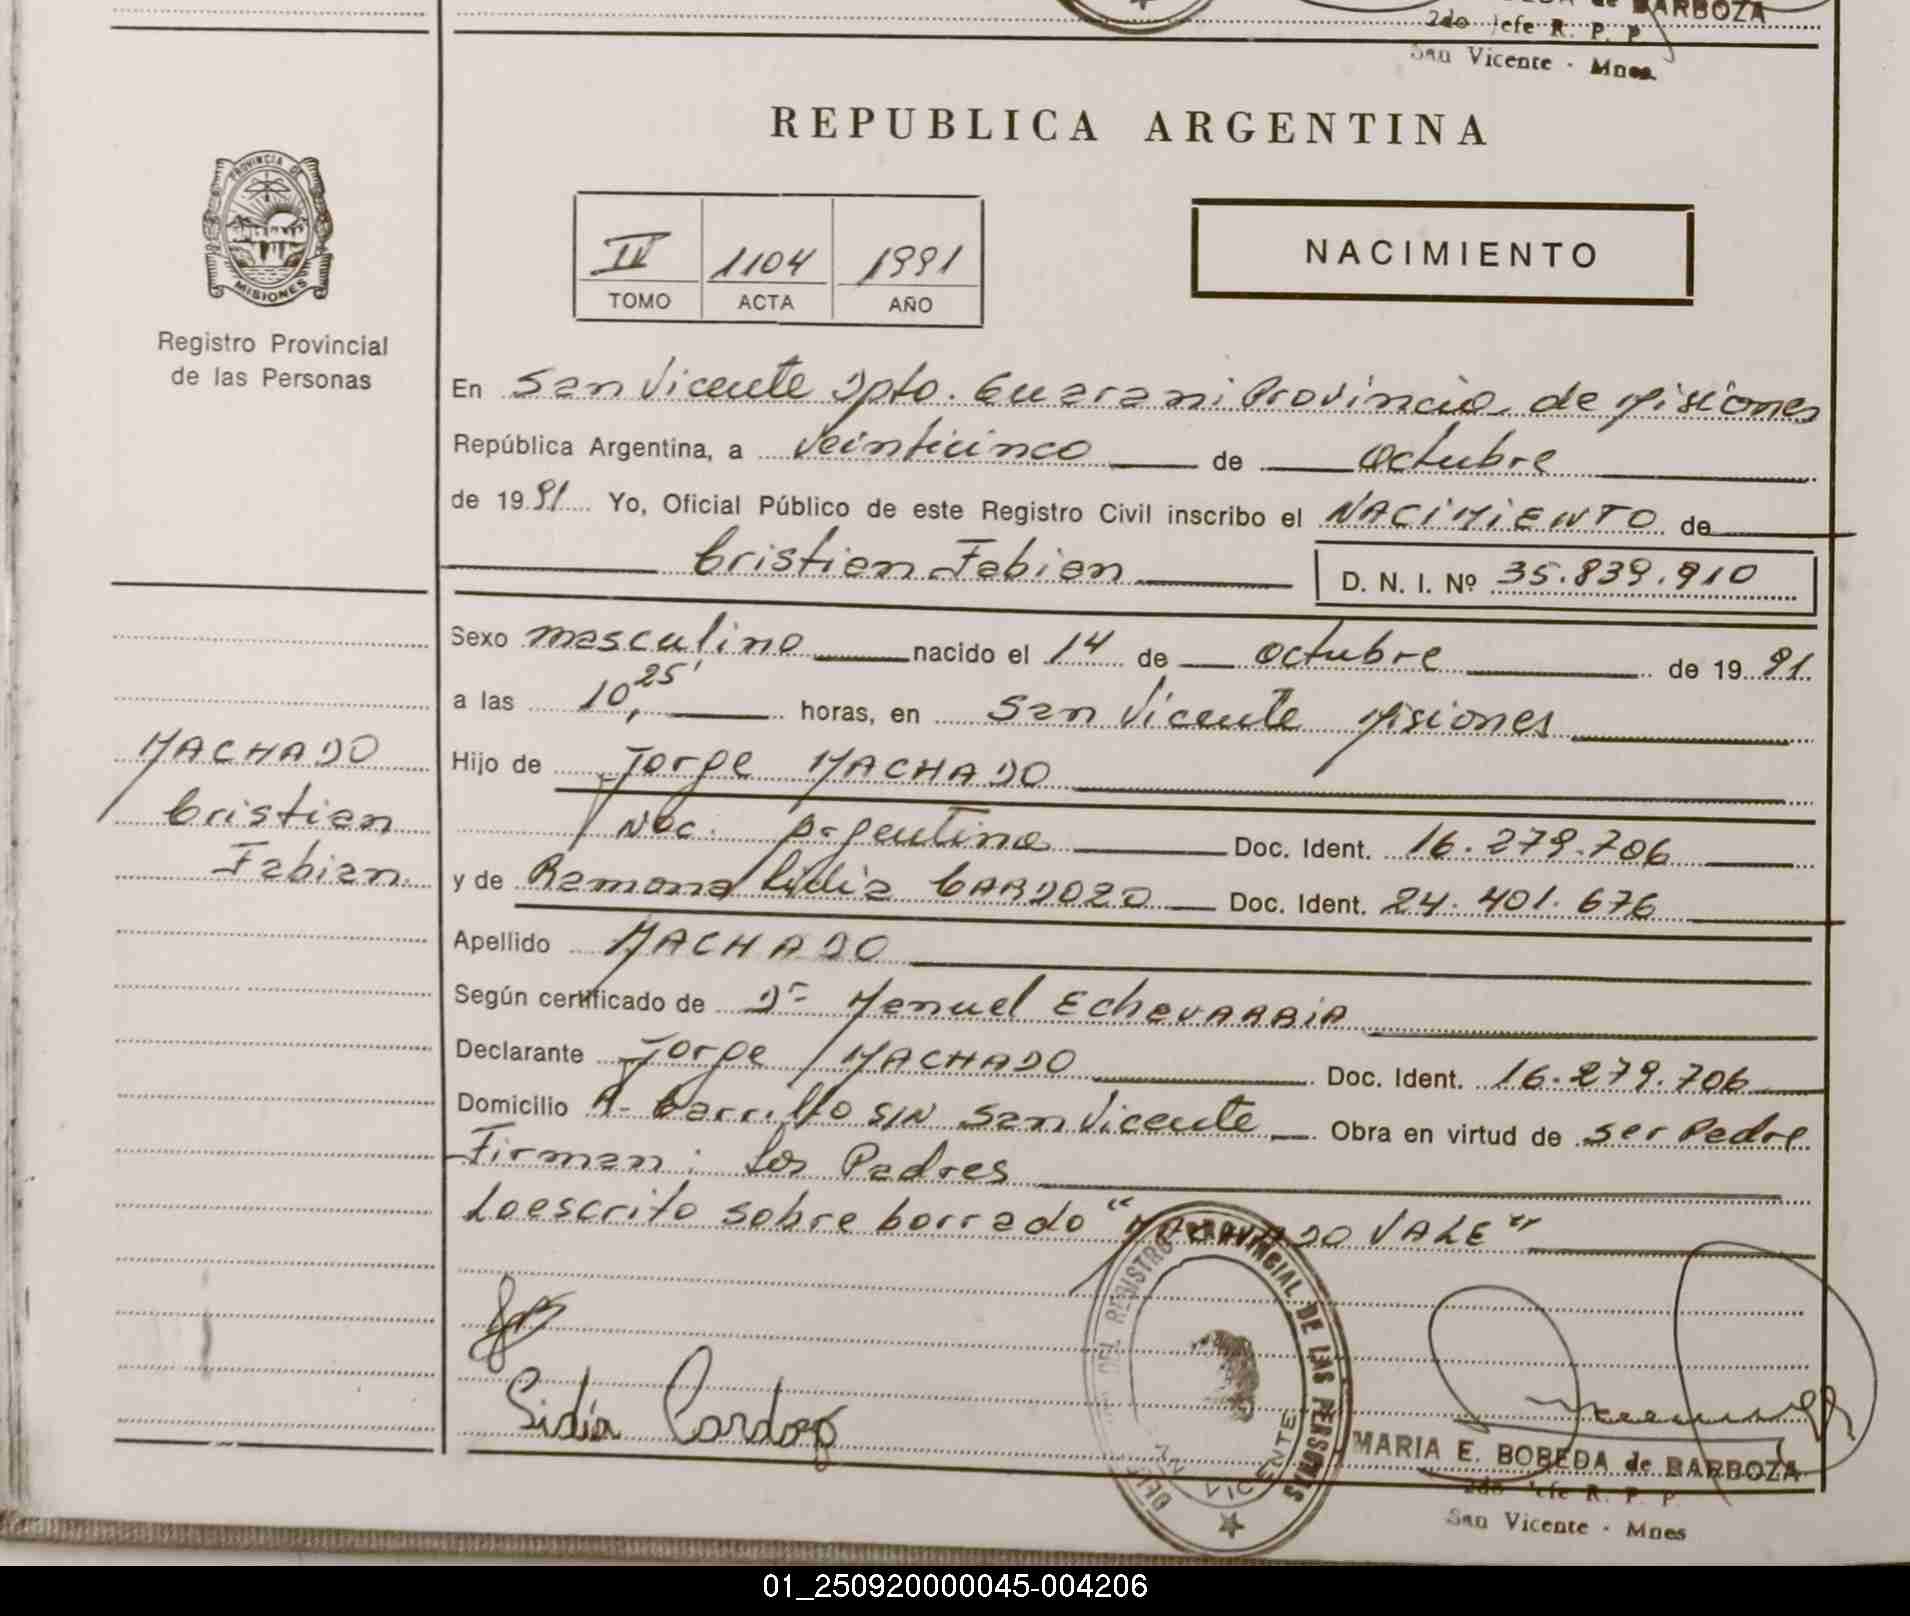 BARBOZA
2do Jefe R. P. P.
San Vicente - Mnes
REPUBLICA ARGENTINA
PROVINCIA DE
MISIONES
Registro Provincial
de las Personas
IV 1104 1991
TOMO ACTA AÑO
NACIMIENTO
En San Vicente Dpto. Guarani Provincia de Misiones
República Argentina, a veinticinco de octubre
de 1991 Yo, Oficial Público de este Registro Civil inscribo el NACIMIENTO de
Cristian Fabian D. N. I. Nº 35.839.910
Sexo masculino nacido el 14 de octubre de 1991
a las 10,25' horas, en San Vicente Misiones
Hijo de Jorge MACHADO
Nac. Argentina Doc. Ident. 16.279.706
y de Ramona Lidia CARDOZO Doc. Ident. 24.401.676
Apellido MACHADO
Según certificado de Dr Manuel EchevARRIA
Declarante Jorge MACHADO Doc. Ident. 16.279.706
Domicilio A- barrillo S/N San Vicente Obra en virtud de ser Padre
Firman: Los Padres
Lo escrito sobre borrado "MACHADO VALE"
MACHADO
Cristian
Fabian
Lidia Cardozo
DEL REGISTRO PROVINCIAL DE LAS PERSONAS
VICENTE
MARIA E. BOBEDA de BARBOZA
2do Jefe R. P. P.
San Vicente - Mnes
01_250920000045-004206